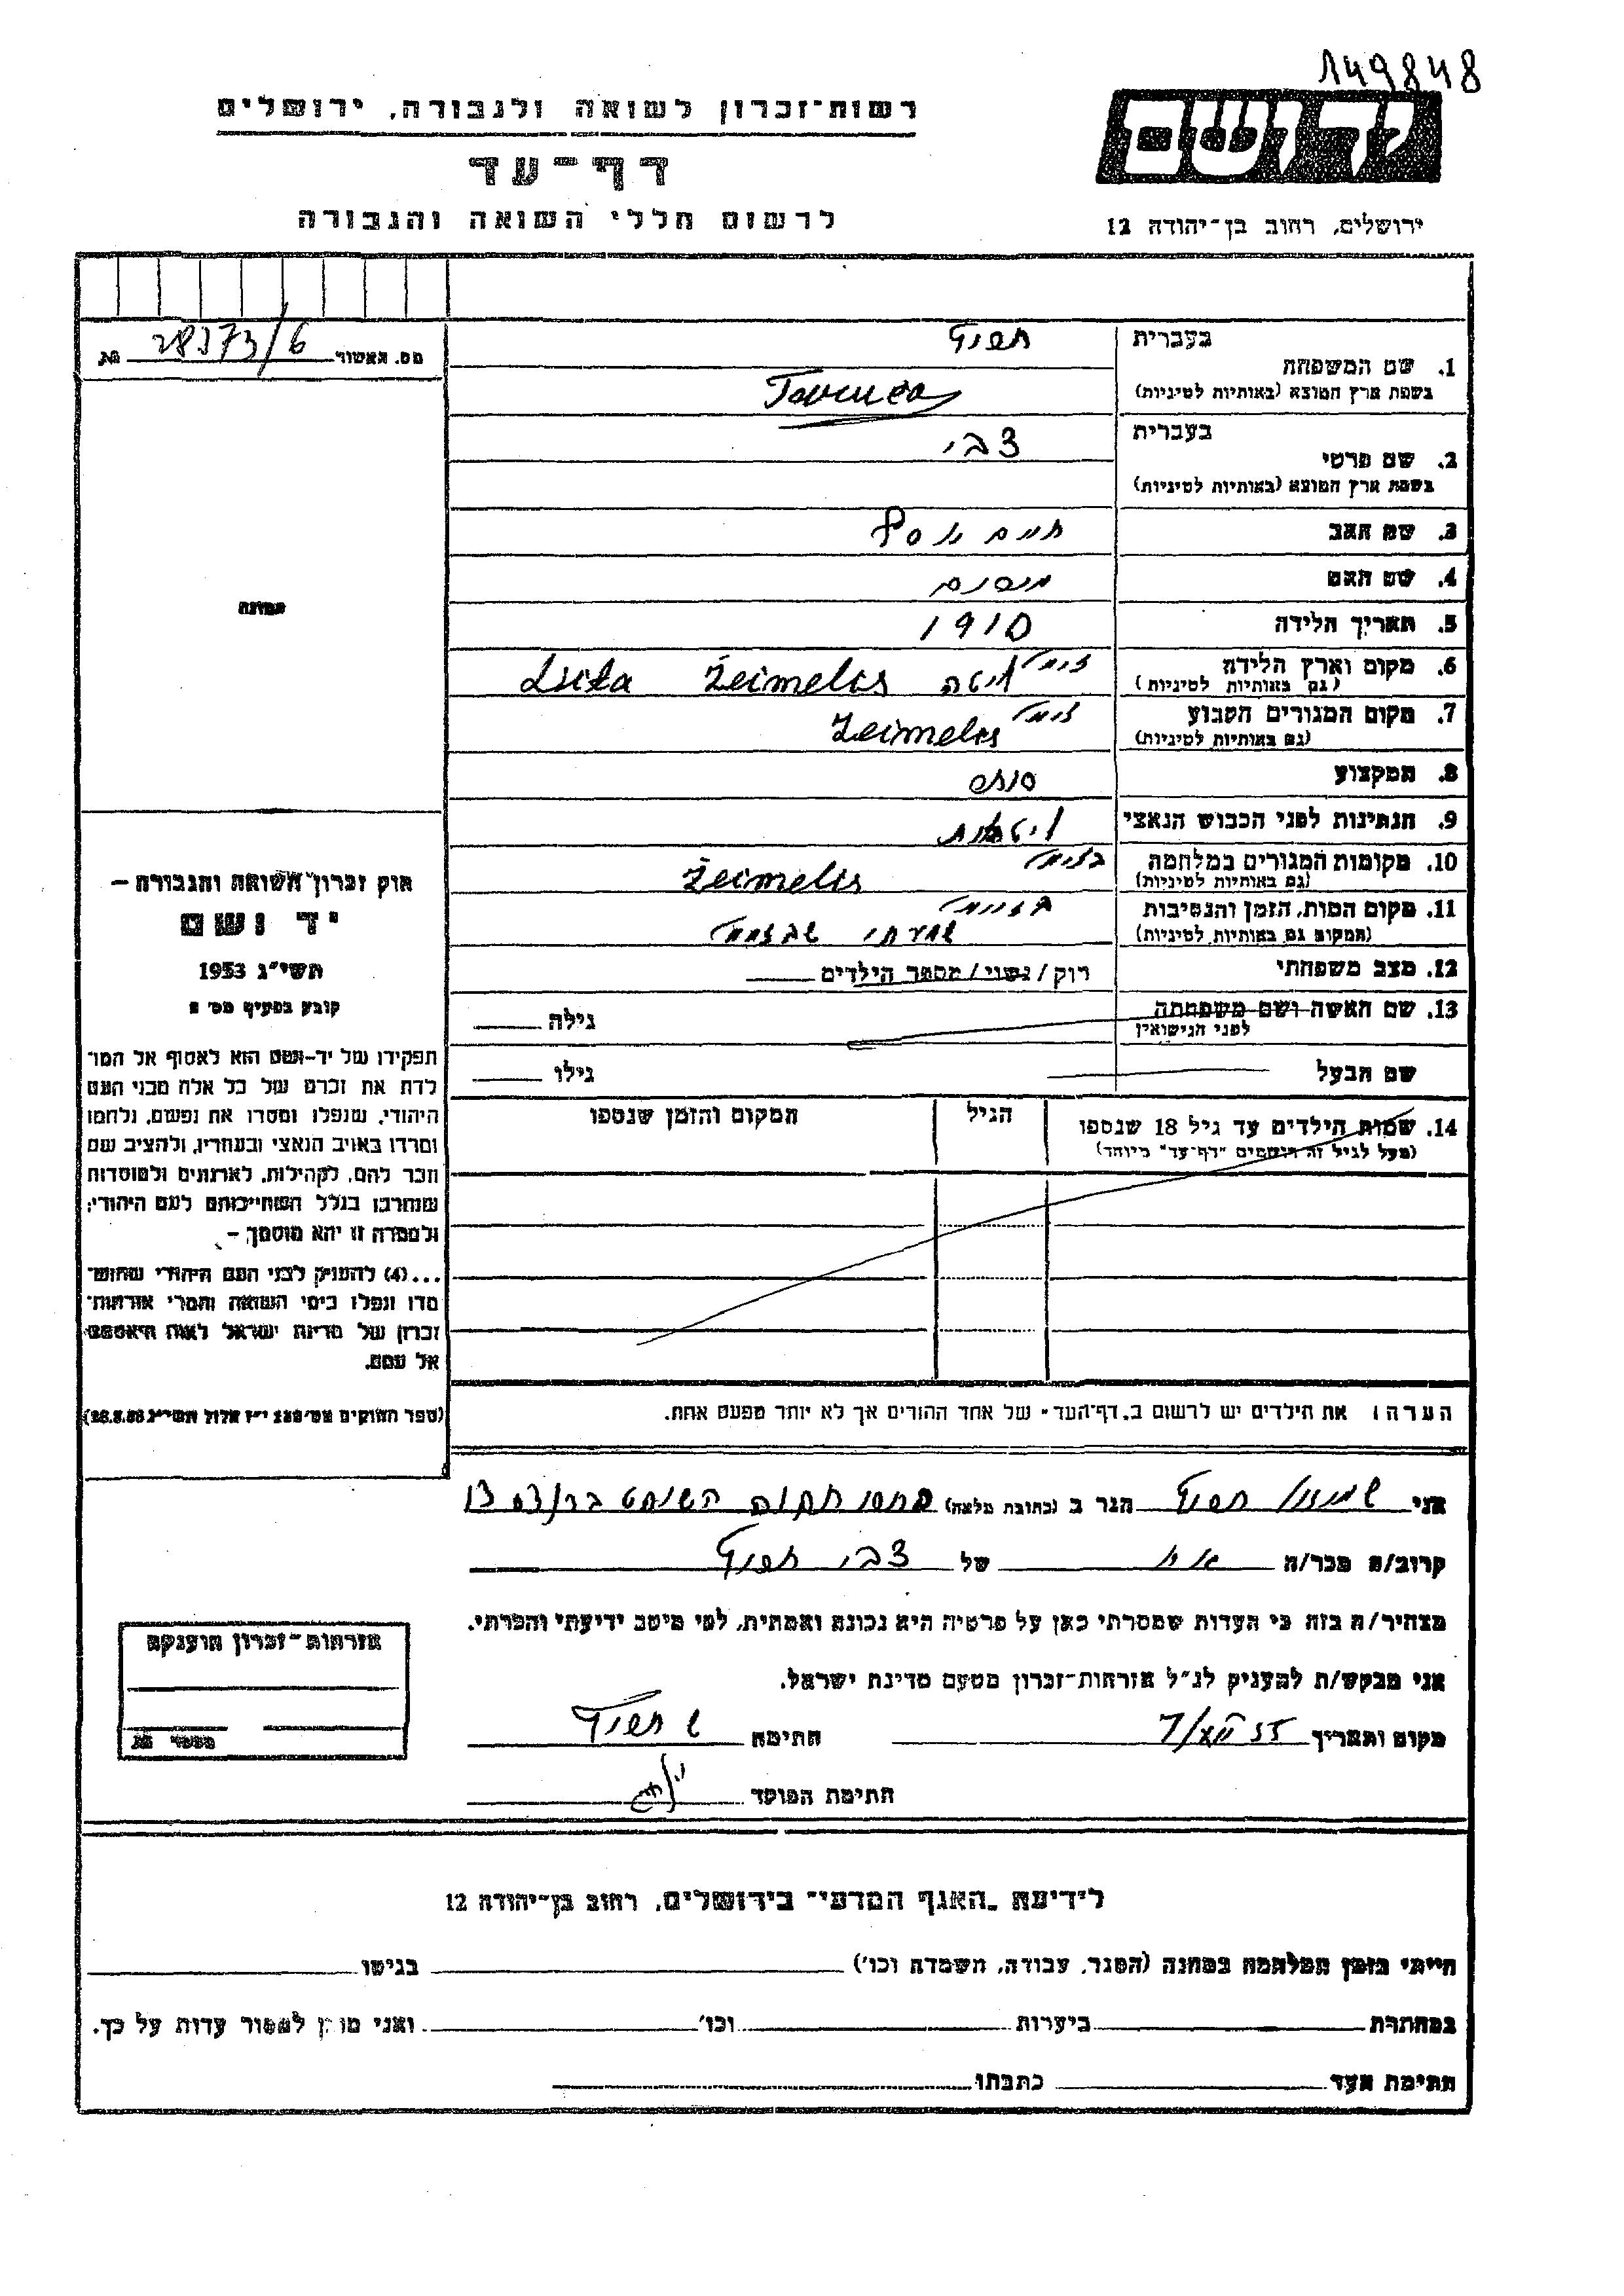 149848
רשות־זכרון לשואה ולגבורה, ירושלים
ידושם
דף־עד
לרשום חללי השואה והגבורה
ירושלים, רחוב בן־יהודה 12
מס. האשור № 28373/6
תמונה
1. שם המשפחה
בעברית
בשפת ארץ המוצא (באותיות לטיניות)
2. שם פרטי
בעברית צבי
בשפת ארץ המוצא (באותיות לטיניות)
3. שם האב חיים יוסף
4. שם האם מרים
5. תאריך הלידה 1910
6. מקום וארץ הלידה
(גם באותיות לטיניות) ליטה Žeimelis Lita
7. מקום המגורים הקבוע
(גם באותיות לטיניות) Zeimelis
8. המקצוע סוחר
9. הנתינות לפני הכבוש הנאצי ליטאית
10. מקומות המגורים במלחמה
(גם באותיות לטיניות) Žeimelis
11. מקום המות, הזמן והנסיבות
(המקום גם באותיות לטיניות)
12. מצב משפחתי רוק/נשוי/מספר הילדים
13. שם האשה ושם משפחתה
לפני הנישואין
גילה
שם הבעל
גילו
14. שמות הילדים עד גיל 18 שנספו
(מעל לגיל זה רושמים "דף־עד" מיוחד)
הגיל
המקום והזמן שנספו
הערה: את הילדים יש לרשום ב„דף־העד" של אחד ההורים אך לא יותר מפעם אחת.
חוק זכרון השואה והגבורה –
יד ושם
תשי"ג 1953
קובע בסעיף מס' 2
תפקידו של יד־ושם הוא לאסוף אל המו־
לדת את זכרם של כל אלה מבני העם
היהודי, שנפלו ומסרו את נפשם, נלחמו
ומרדו באויב הנאצי ובעוזריו, ולהציב שם
וזכר להם, לקהילות, לארגונים ולמוסדות
שנחרבו בגלל השתייכותם לעם היהודי;
ולמטרה זו יהא מוסמך –
...(4) להעניק לבני העם היהודי שהוש־
מדו ונפלו בימי השואה והמרי אזרחות־
זכרון של מדינת ישראל לאות היאספם
אל עמם.
(ספר החוקים מס' 132 י"ז אלול תשי"ג 28.8.53)
אני הגר ב (כתובת מלאה)
קרוב/ה מכר/ה אח של צבי
מצהיר/ה בזה כי העדות שמסרתי כאן על פרטיה היא נכונה ואמתית, לפי מיטב ידיעתי והכרתי.
אני מבקש/ת להעניק לנ"ל אזרחות־זכרון מטעם מדינת ישראל.
מקום ותאריך חתימה
חתימת הפוקד
אזרחות־זכרון הוענקה
מספר №
לידיעת „האגף המדעי" בירושלים, רחוב בן־יהודה 12
הייתי בזמן המלחמה במחנה (הסגר, עבודה, השמדה וכו') בגיטו
במחתרת ביערות וכו' ואני מוכן למסור עדות על כך.
חתימת העד כתבתו